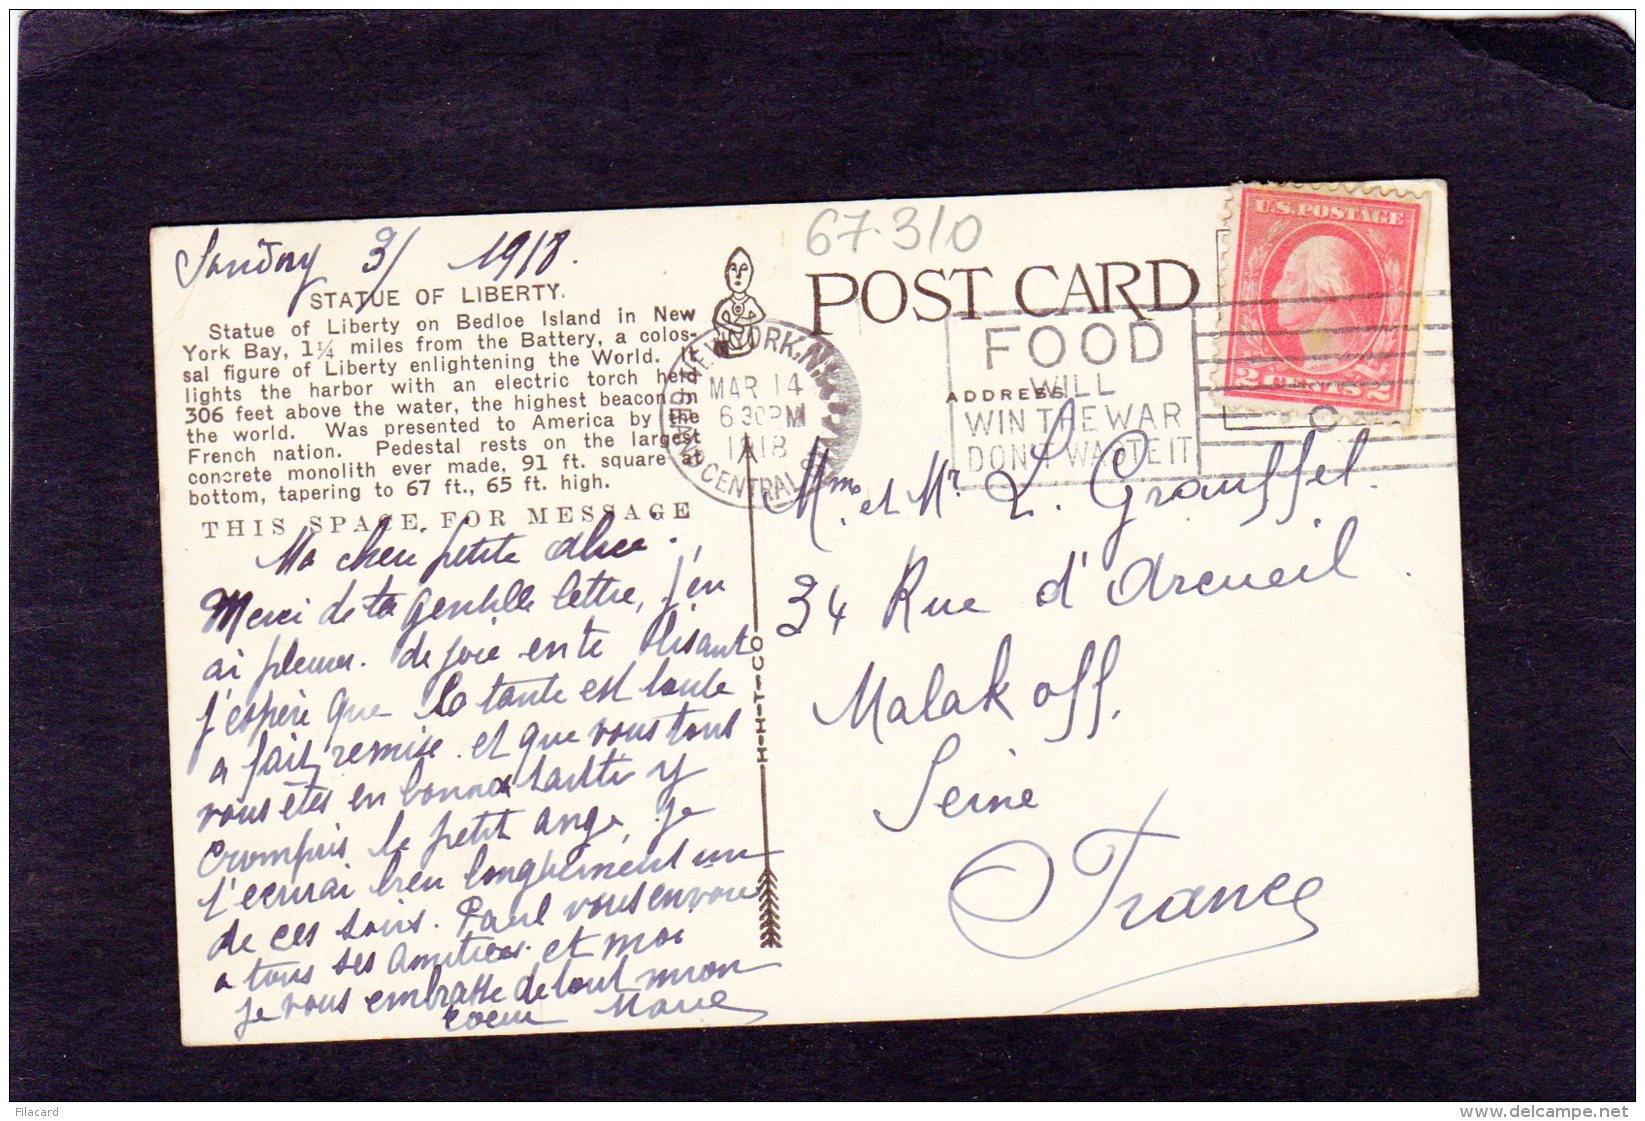 Sunday 3/ 1918.
STATUE OF LIBERTY.
Statue of Liberty on Bedloe Island in New
York Bay, 1¼ miles from the Battery, a colos-
sal figure of Liberty enlightening the World. It
lights the harbor with an electric torch held
306 feet above the water, the highest beacon in
the world. Was presented to America by the
French nation. Pedestal rests on the largest
concrete monolith ever made, 91 ft. square at
bottom, tapering to 67 ft., 65 ft. high.
THIS SPACE FOR MESSAGE
Ma cher petite alice.
Merci de ta gentille lettre, j'en
ai pleurer de joie en te lisant
j'espère que la tante est toute
a fait remise et que vous tous
vous êtes en bonne santé y
crompris le petit ange, je
t'ecrirai bien longuement un
de ces soirs. Paul vous envoie
a tous ses amities et moi
je vous embrasse de tout mon
coeur Marie
H-H-T-CO
67-310
POST CARD
NEW YORK, N.Y.
MAR 14
6 30 PM
1918
GRAND CENTRAL
FOOD
WILL
WIN THE WAR
DON'T WASTE IT
ADDRESS
U.S. POSTAGE
2 CENTS 2
C
Mme et Mr L. Grauffel.
34 Rue d'Arcueil.
Malakoff.
Seine
France
Filacard
www.delcampe.net